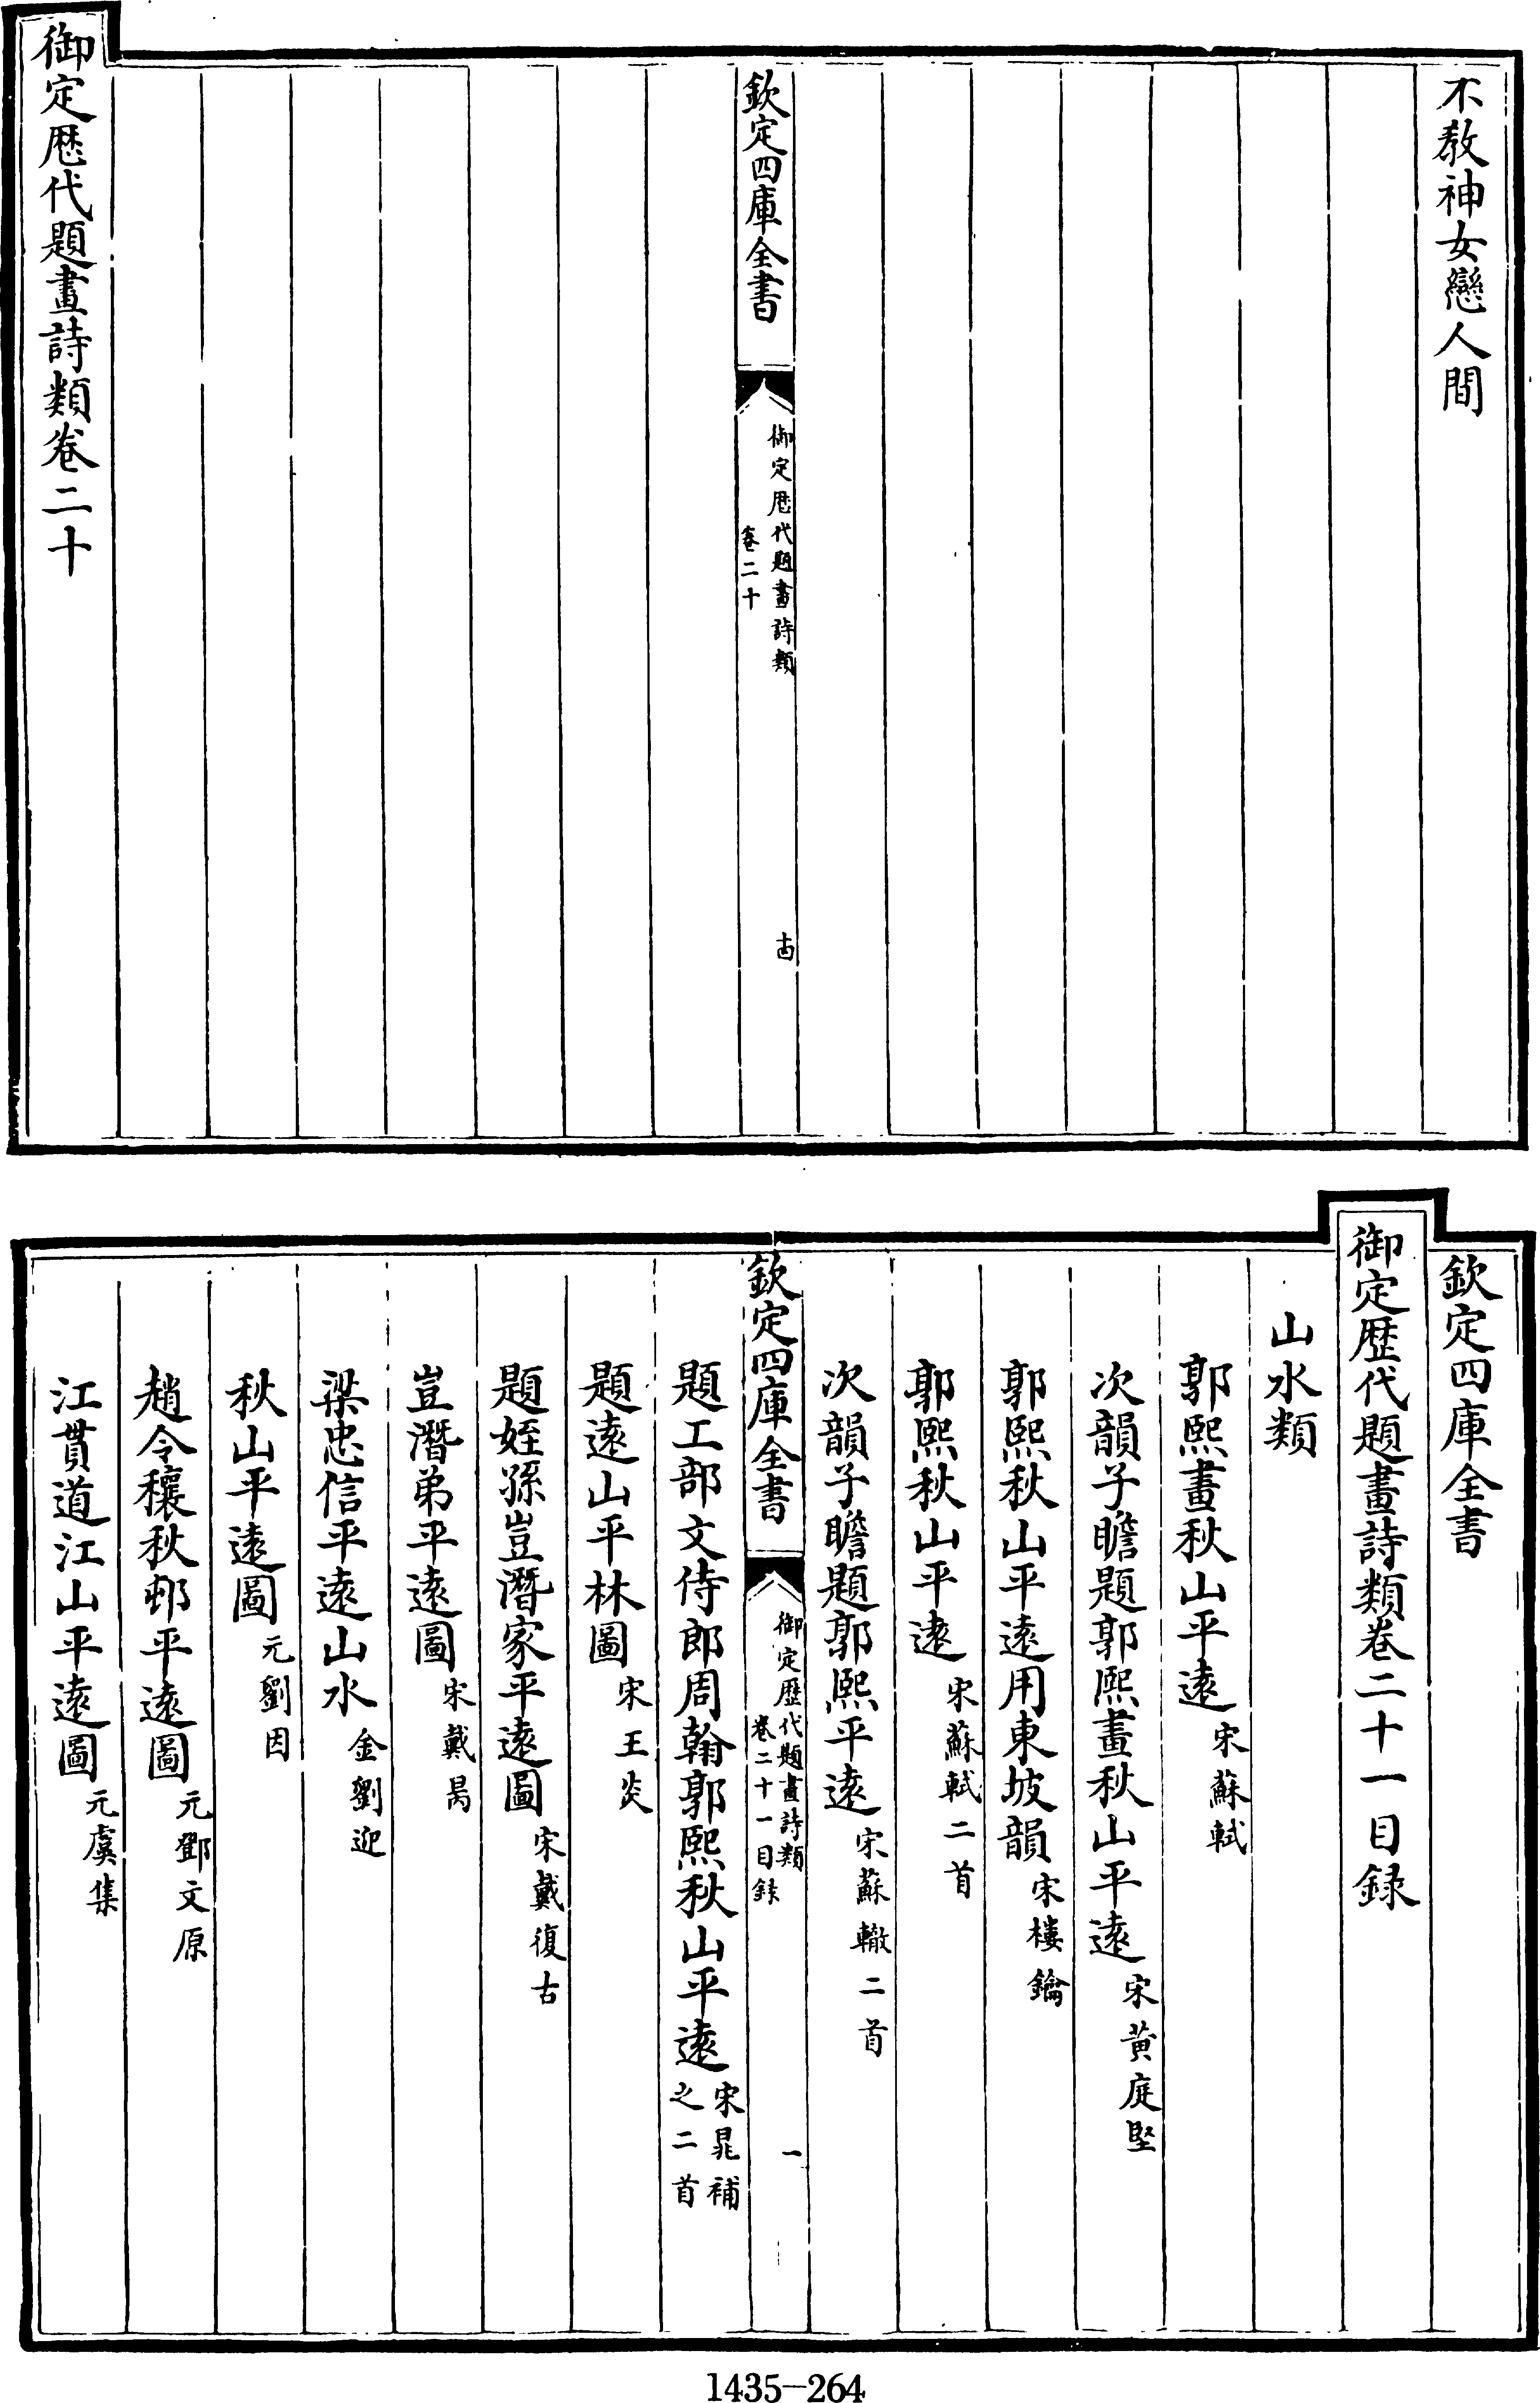 不教神女戀人間
欽定四庫全書
御定厯代題畫詩類
卷二十
十四
御定厯代題畫詩類卷二十
欽定四庫全書
御定歴代題畫詩類卷二十一目録
山水類
郭熙畫秋山平遠 宋蘇軾
次韻子瞻題郭熙畫秋山平遠 宋黄庭堅
郭熙秋山平遠用東坡韻 宋樓鑰
郭熙秋山平逺 宋蘇軾二首
次韻子瞻題郭熙平遠 宋蘇轍二首
欽定四庫全書
御定歴代題畫詩類
卷二十一目録
一
題工部文侍郎周翰郭熙秋山平遠 宋晁補之二首
題遠山平林圖 宋王炎
題姪孫豈潛家平遠圖 宋戴復古
豈潛弟平遠圖 宋戴昺
梁忠信平遠山水 金劉迎
秋山平遠圖 元劉因
趙令穰秋邨平遠圖 元鄧文原
江貫道江山平遠圖 元虞集
1435-264